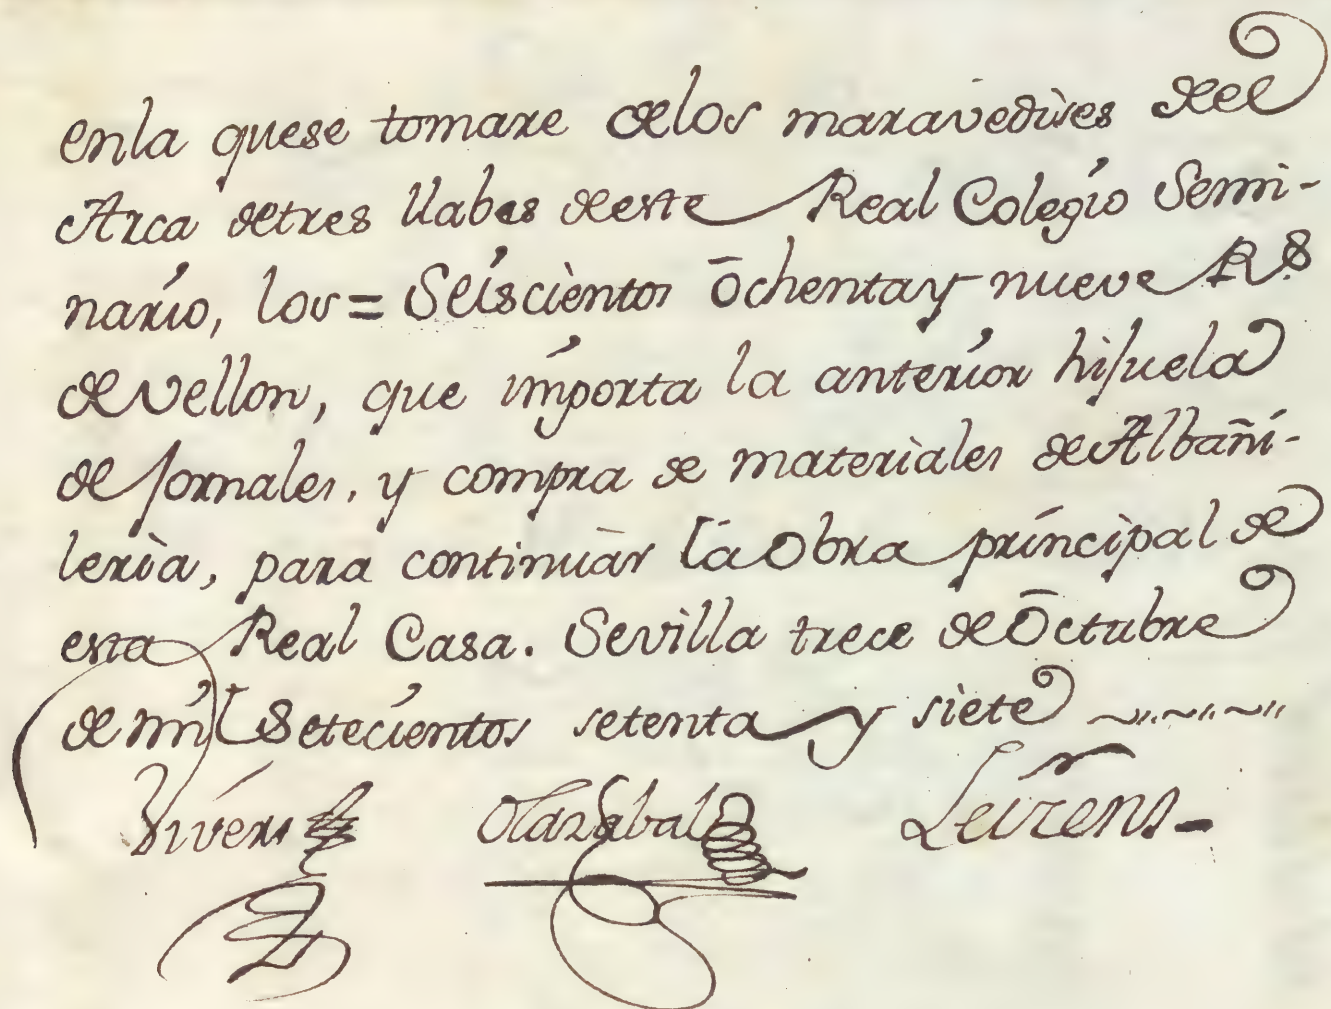 enla quese tomare delos maravedìses deel
Arca detres llabes deste Real Colegío Semi-
narío, los = Seíscìentos ōchentay nueve R.s
de vellon, que ímporta la anteríor hijuela
de jornales, y compra de materìales de Albañí-
lerìa, para continuar la Obra príncìpal de
esta Real Casa. Sevìlla trece de Ōctubre
de míl Setecíentos setenta y sìete
Viveros
Olazabal